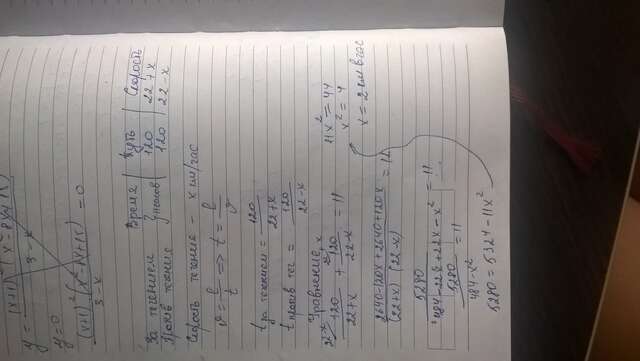 y = (x+1)² (x²-8x+15) / 3-x
y=0
(x+1)² (x²-8x+15) / 3-x = 0
Время | Путь | Скорость
За течением } 11 часов | 120 | 22+x
Против течение | 120 | 22-x
Скорость течение - x км/час
v = l/t => t = l/v
t за течением = 120/22+x
t против теч = 120/22-x
Уравнение
22-x 120/22+x + 22+x 120/22-x = 11
2640-120x+2640+120x / (22+x) (22-x) = 11
5280 / 484-22x+22x-x² = 11
5280 / 484-x² = 11
5280 = 5324-11x²
11x² = 44
x² = 4
x = 2 км в час